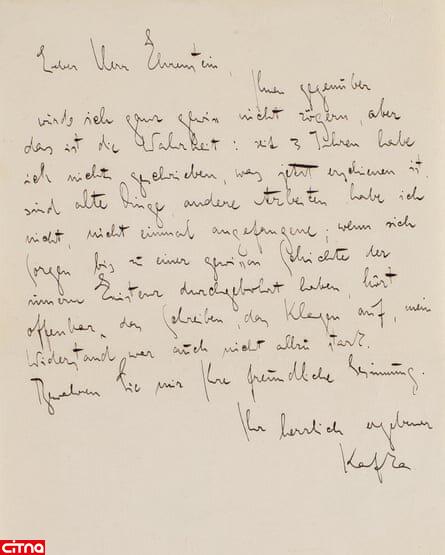 Lieber Herr Ehrenstein,
Ihnen gegenüber
würde ich ganz gewiss nicht zögern, aber
das ist die Wahrheit: seit 3 Jahren habe
ich nichts geschrieben, was jetzt erschienen ist
sind alte Dinge, andere Arbeiten habe ich
nicht, nicht einmal angefangene; wenn sich
Sorgen bis zu einer gewissen Schichte der
innern Existenz durchgebohrt haben, hört
offenbar das Schreiben, das Klagen auf, mein
Widerstand war auch nicht allzu stark.
Bewahren Sie mir Ihre freundliche Gesinnung.
Ihr herzlich ergebener
Kafka
citna